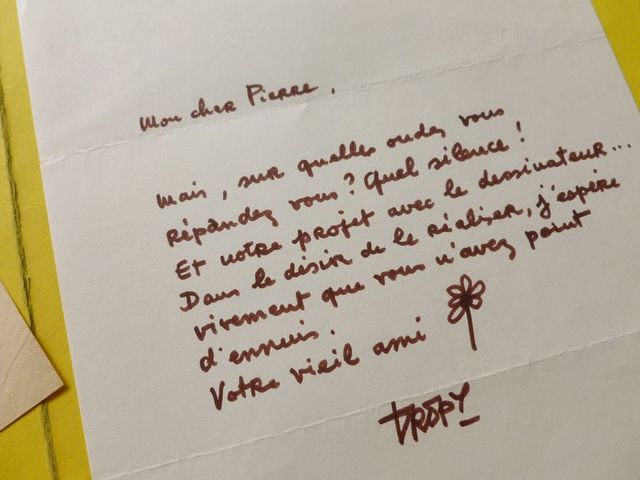 Mon cher Pierre,
Mais, sur quelles ondes vous
répandez vous? Quel silence!
Et notre projet avec le dessinateur...
Dans le désir de le réaliser, j'espère
vivement que vous n'avez point
d'ennuis.
Votre vieil ami
DROPY